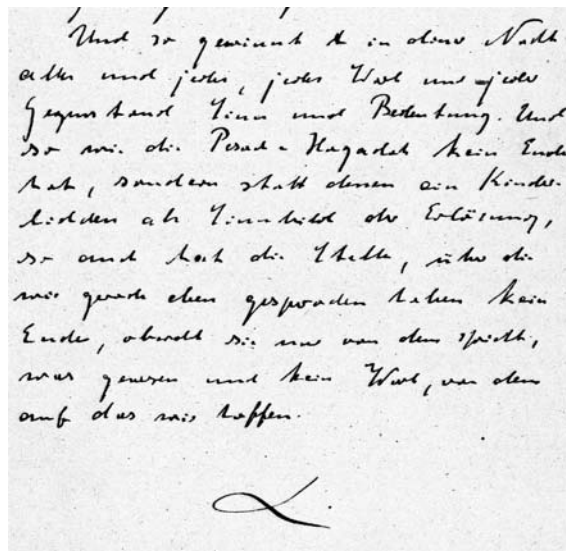 Und so gewinnt in dieser Nacht
alles und jedes, jedes Wort und jeder
Gegenstand Sinn und Bedeutung. Und
so wie die Pesach-Hagadah kein Ende
hat, sondern statt dessen ein Kinder-
liedchen als Sinnbild der Erlösung,
so auch hat die Stelle, über die
wir gerade eben gesprochen haben kein
Ende, obwohl sie nur von dem spricht,
was gewesen und kein Wort, von dem
auf das wir hoffen.